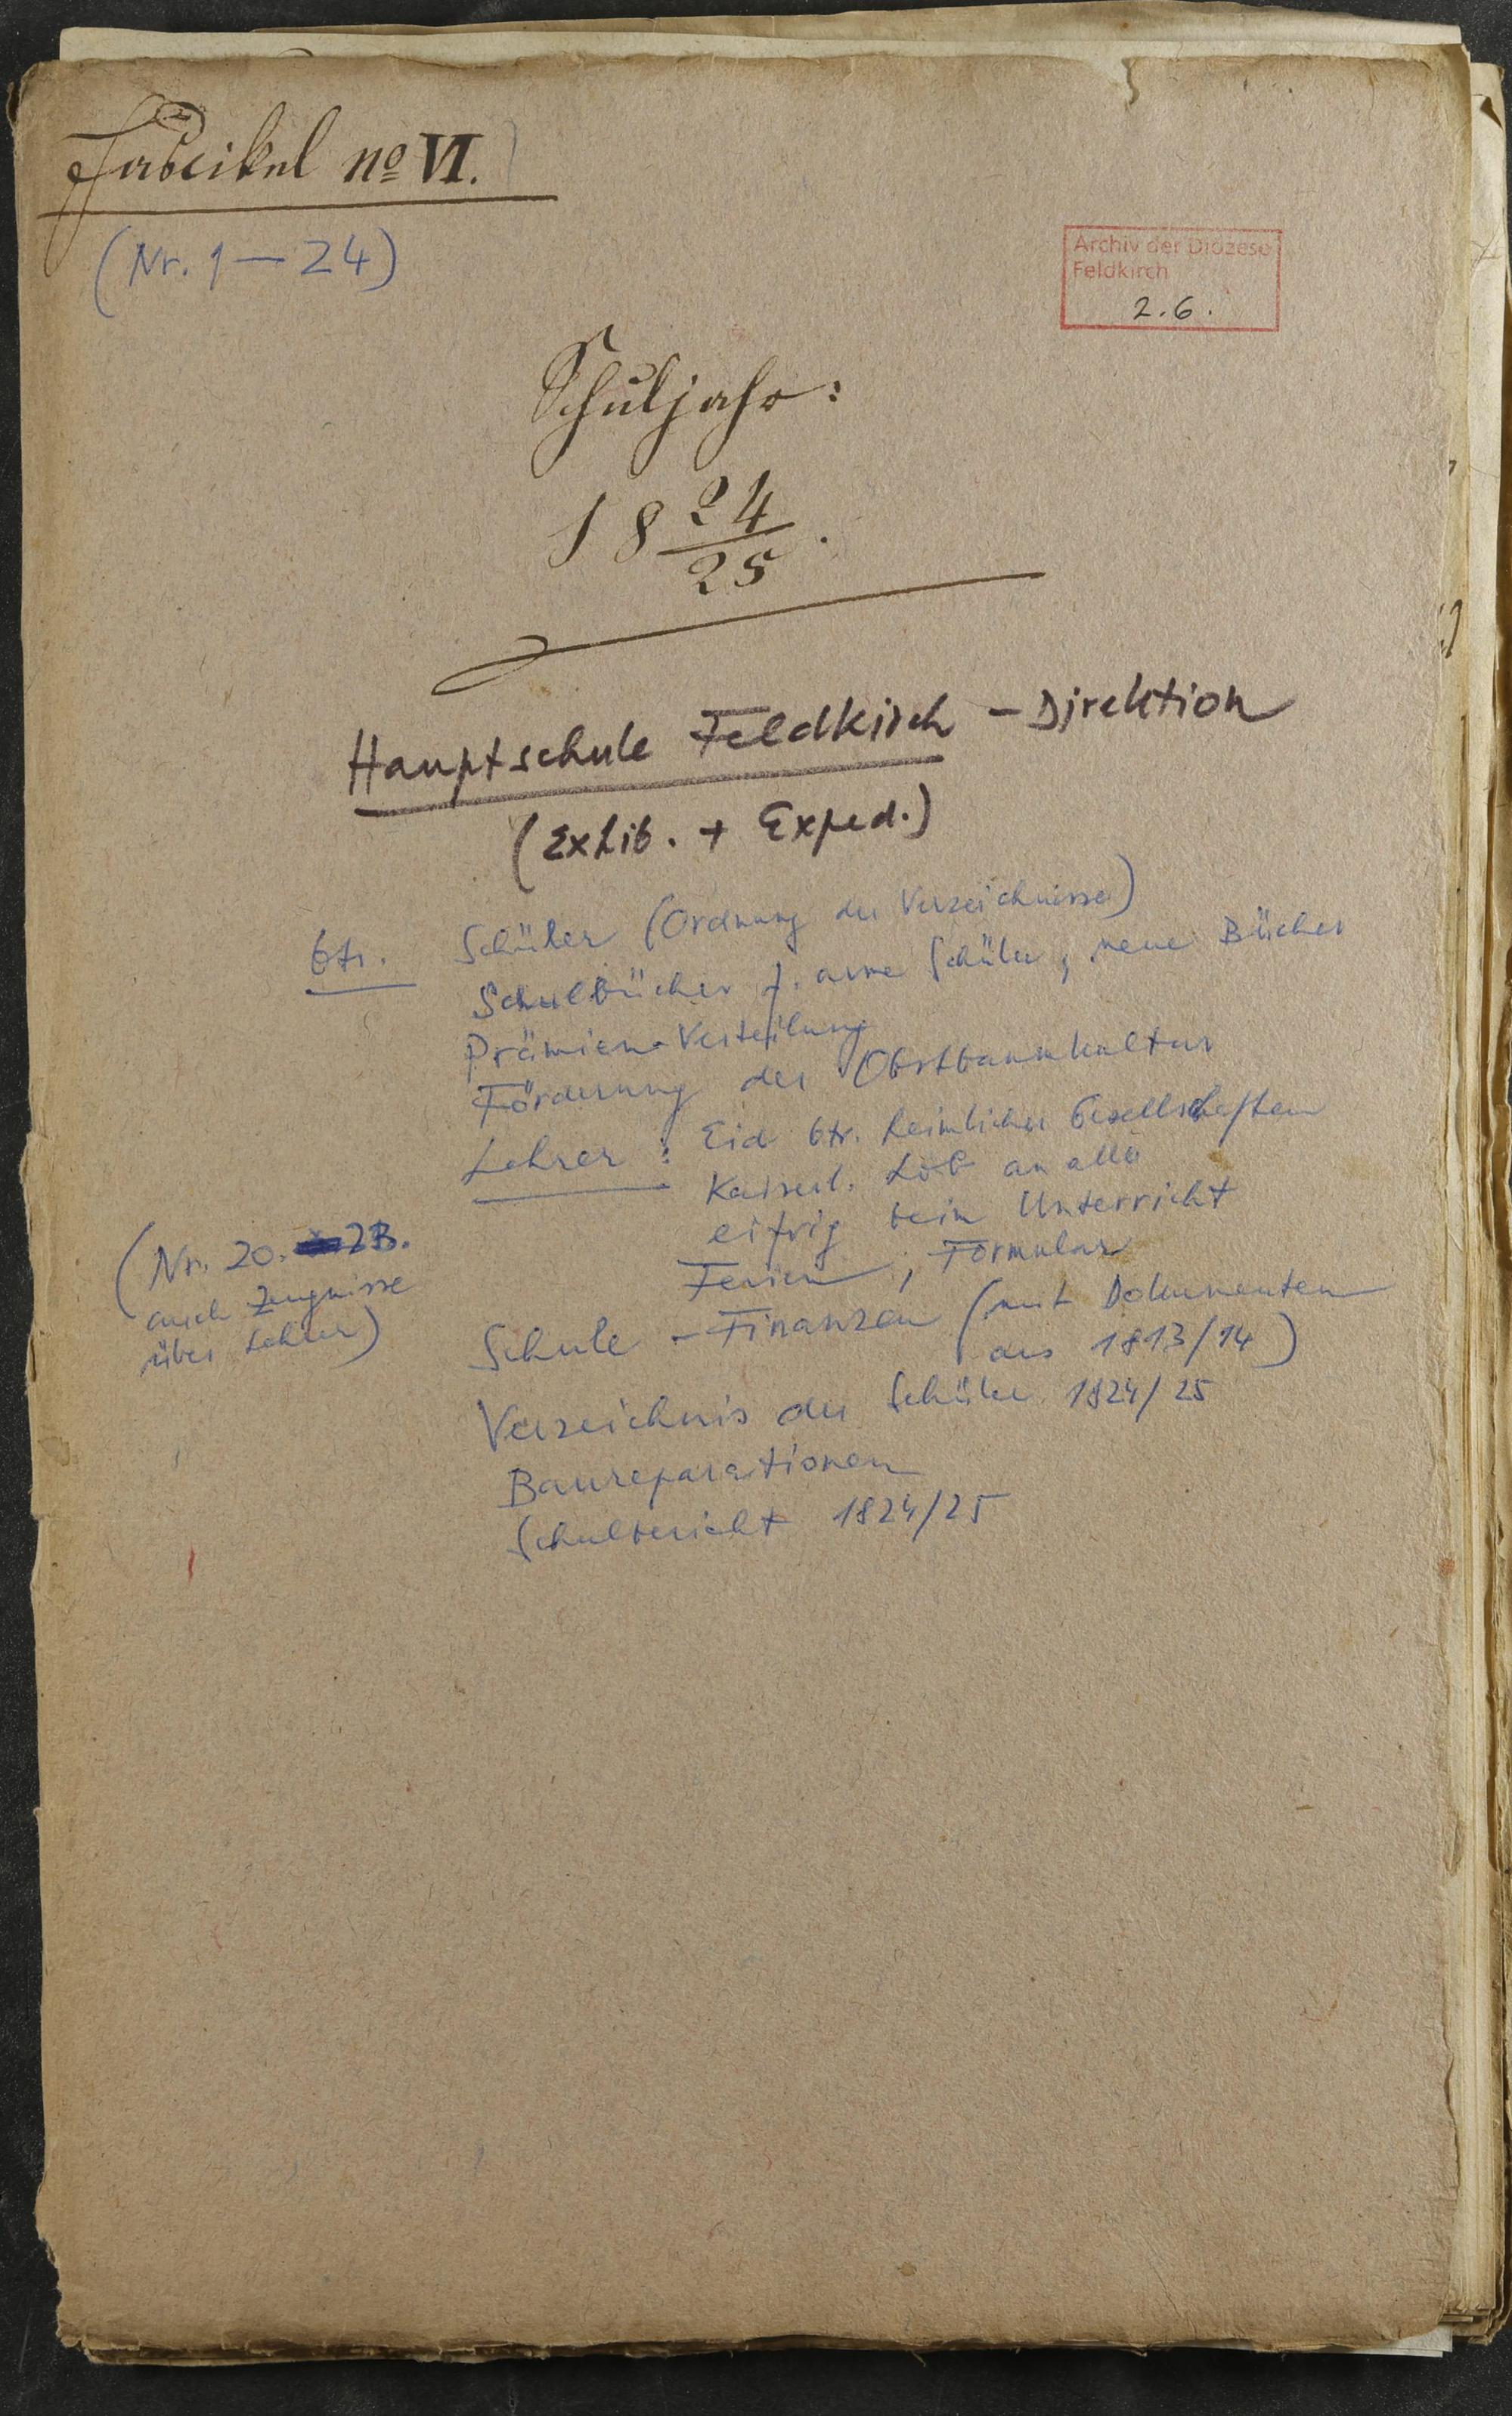 Fascikel no VI.
(Nr. 1 — 24)
Archiv der Diözese
Feldkirch
2.6.
Schuljahr:
18 24/25.
Hauptschule Feldkirch - Direktion
(Exhib. + Exped.)
btr. Schüler (Ordnung der Verzeichnisse)
Schulbücher f. arme Schüler, neue Bücher
Prämien-Verteilung
Förderung der Obstbaumkultur
Lehrer: Eid btr. heimlicher Gesellschaften
Kaiserl. Lob an alle
eifrig beim Unterricht
Ferien, Formular
(Nr. 20. 23.
auch Zeugnisse
über Lehrer)
Schule - Finanzen (mit Dokumenten
aus 1813/14)
Verzeichnis der Schüler 1824/25
Baureparationen
Schulbericht 1824/25